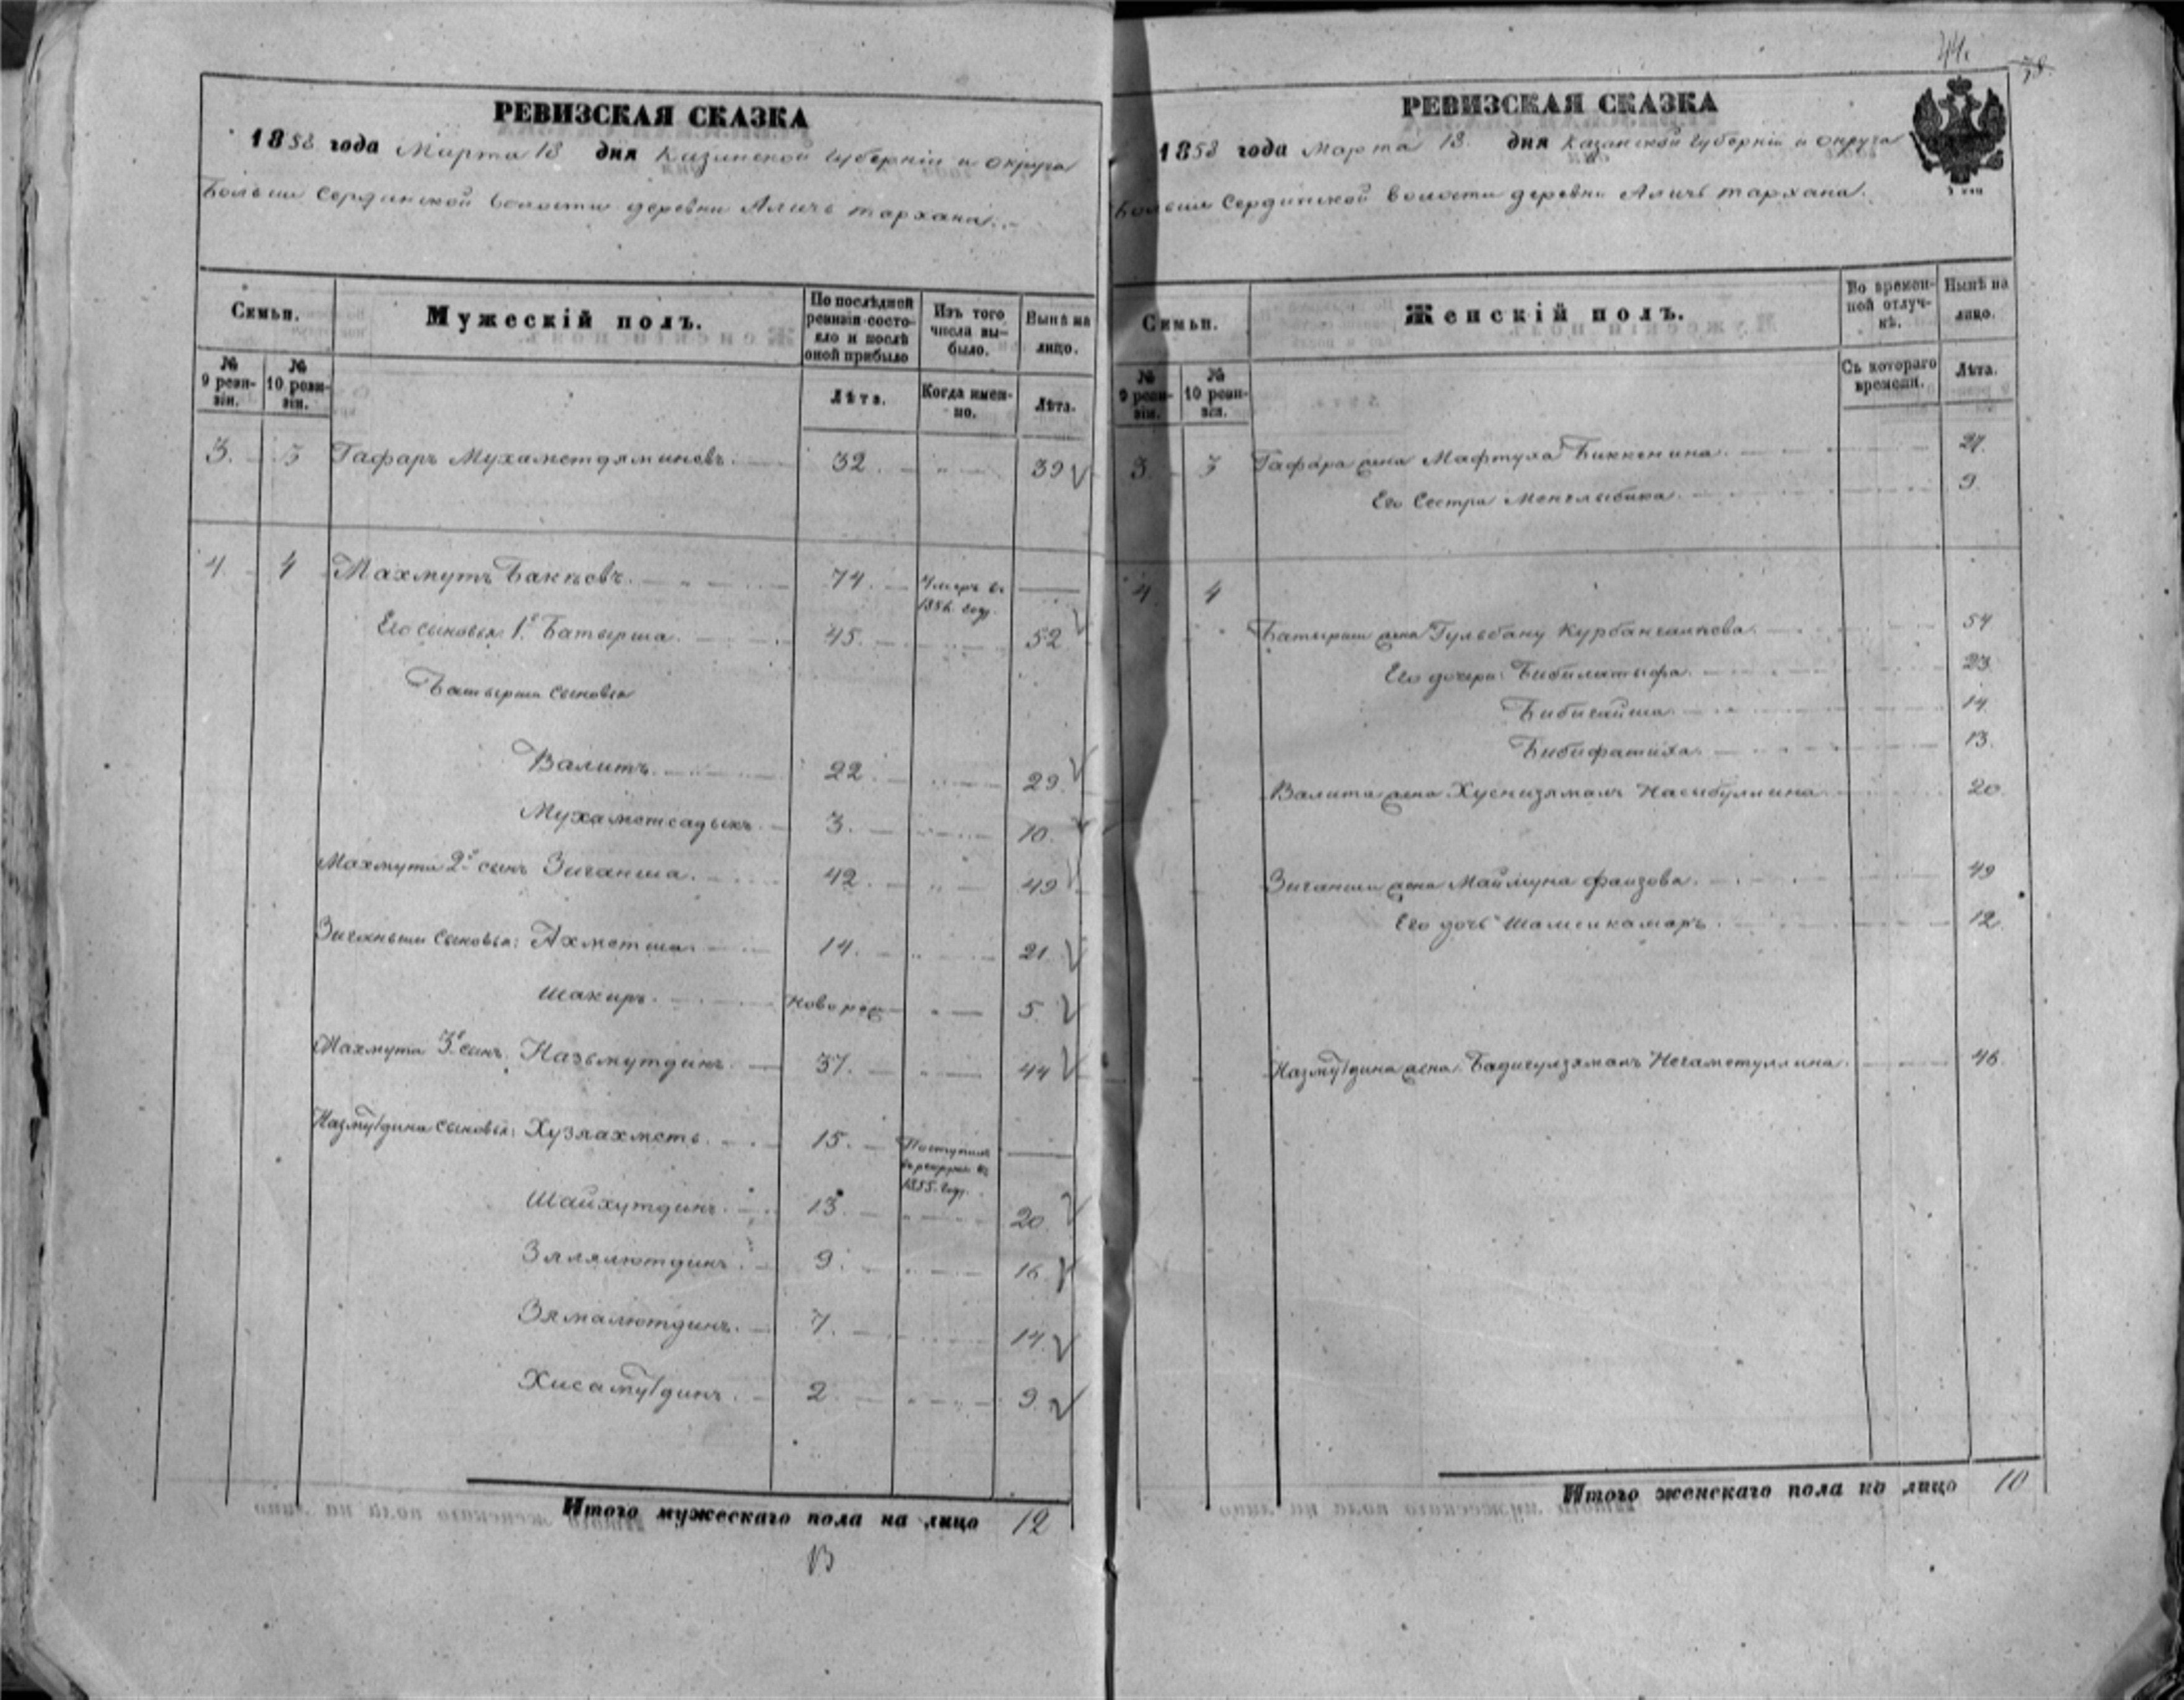 РЕВИЗСКАЯ СКАЗКА
1858 года Марта 18 дня Казанской Губерніи и округа
Больше Сердинской волости деревни Аличь тархана.
Семьи.
Мужескій полъ.
По послѣдней ревизіи состояло и послѣ оной прибыло
Изъ того числа выбыло.
Нынѣ на лицо.
№ 9 ревизіи.
№ 10 ревизіи.
Лѣта.
Когда именно.
Лѣта.
3. 3 Гафаръ Мухаметдяминовъ. 32. 39
4. 4 Махмутъ Бакѣевъ. 74. Умеръ въ 1856. году.
Его сыновья: 1й Батырша. 45. 52
Батырши сыновья
Валитъ. 22. 29.
Мухаметсадыкъ. 3. 10.
Махмута 2й сынъ Зиганша. 42. 49
Зиганьши сыновья: Ахметша. 14. 21
Шакиръ. Новорож 5.
Махмута 3й сынъ. Назьмутдинъ. 37. 44
Назмутдина сыновья: Хузяахметъ. 15. Поступилъ въ рекруты въ 1855. году.
Шайхутдинъ. 13. 20.
Зялялютдинъ. 9. 16.
Зямалютдинъ. 7. 14.
Хисамутдинъ. 2. 9.
Итого мужескаго пола на лицо 12
В
44.
РЕВИЗСКАЯ СКАЗКА
1858 года Марта 18. дня Казанской Губерніи и округа
Больше Сердинской волости деревни Аличь тархана.
Семьи.
Женскій полъ.
Во временной отлучкѣ.
Нынѣ на лицо.
№ 9 ревизіи.
№ 10 ревизія.
Съ котораго времени.
Лѣта.
3. 3 Гафара жена Мафтуха Биккенина. 27.
Его Сестра Менглыбика. 9.
4 4
Батырши жена Гульбану Курбангалѣева. 54
Его дочери: Бибилатыфа. 23.
Бибигайша. 14.
Бибифатиха. 13.
Валита жена Хуснизямалъ Насибуллина. 20.
Зиганши жена Маймуна Фаизова. 49
Его дочь Шамсикамаръ. 12.
Назмутдина жена. Бадигулзямалъ Негаметуллина. 46.
Итого женскаго пола на лицо 10